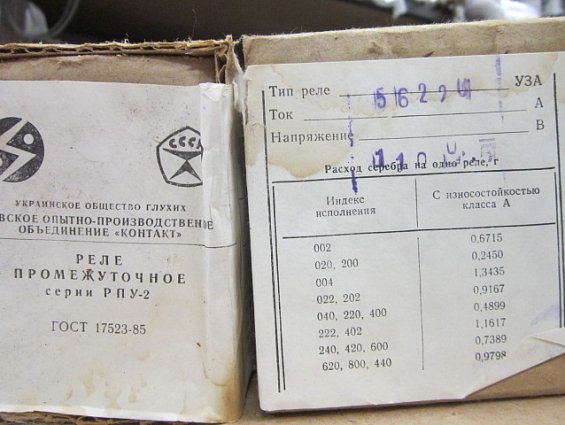 СССР
УКРАИНСКОЕ ОБЩЕСТВО ГЛУХИХ
ВСКОЕ ОПЫТНО-ПРОИЗВОДСТВЕННОЕ
ОБЪЕДИНЕНИЕ «КОНТАКТ»
РЕЛЕ
ПРОМЕЖУТОЧНОЕ
серии РПУ-2
ГОСТ 17523-85
Тип реле УЗА
Ток А
Напряжение В
110
Расход серебра на одно реле, г
Индекс исполнения
С износостойкостью класса А
002 0,6715
020, 200 0,2450
004 1,3435
022, 202 0,9167
040, 220, 400 0,4899
222, 402 1,1617
240, 420, 600 0,7389
620, 800, 440 0,9798